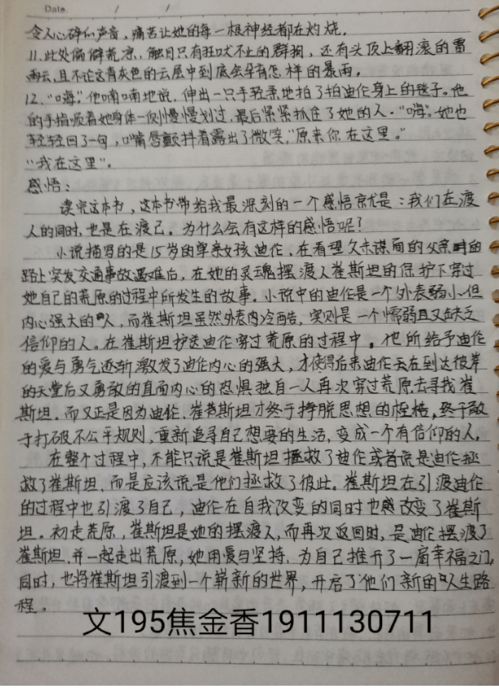 Date
令人心碎的声音，痛苦让她的每一根神经都在灼烧。
11.此处偏僻荒凉，触目只有狂吠不止的群狗，还有头顶上翻滚的雷
雨云，且不论这青灰色的云层中到底会孕有怎样的暴雨。
12.“嗨。”他喃喃地说，伸出一只手轻柔地拍了拍迪伦身上的毯子。他
的手指顺着她身体一侧慢慢划过，最后紧紧抓住了她的人。“嗨。”她也
轻轻回了一句，嘴唇颤抖着露出了微笑，“原来你在这里。”
“我在这里”。
感悟：
读完这本书，这本书带给我最深刻的一个感悟就是：我们在渡
人的同时，也是在渡己。为什么会有这样的感悟呢？
小说描写的是15岁的单亲女孩迪伦，在看望久未谋面的父亲时的
路上突发交通事故遇难后，在她的灵魂摆渡人崔斯坦的保护下穿过
她自己的荒原的过程中所发生的故事。小说中的迪伦是一个外表弱小但
内心强大的人，而崔斯坦虽然外表内冷酷，实则是一个懦弱且又缺乏
信仰的人。在崔斯坦护送迪伦穿过荒原的过程中，他所给予迪伦
的爱与勇气逐渐激发了迪伦内心的强大，才使得后来迪伦在到达彼岸
的天堂后又勇敢的直面内心的恐惧独自一人再次穿过荒原去寻找崔
斯坦。而又正是因为迪伦，崔斯坦才终于挣脱思想的桎梏，终于敢
于打破不公平规则，重新追寻自己想要的生活，变成一个有信仰的人。
在整个过程中，不能只说是崔斯坦拯救了迪伦或者说是迪伦拯
救了崔斯坦，而是应该说是他们拯救了彼此。崔斯坦在引渡迪伦
的过程中也引渡了自己，迪伦在自我改变的同时也感改变了崔斯
坦。初走荒原，崔斯坦是她的摆渡人，而再次返回时，是迪伦摆渡了
崔斯坦，并一起走出荒原，她用爱与坚持，为自己推开了一扇幸福之门，
同时，也将崔斯坦引渡到一个崭新的世界，开启了他们新的人生路
程。
文195焦金香1911130711